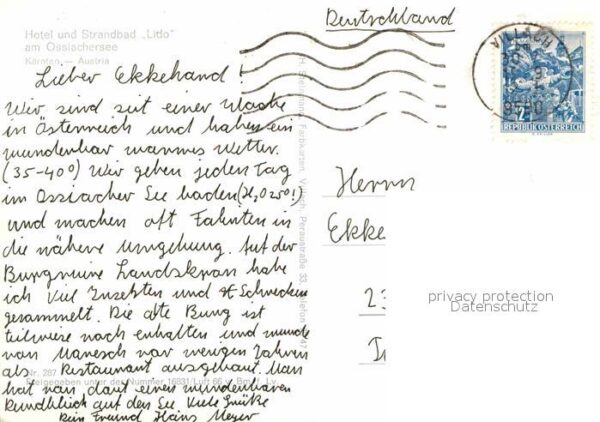 Deutschland
Hotel und Strandbad „Lido"
am Ossiachersee
Kärnten — Austria
Lieber Ekkehard!
Wir sind seit einer Woche
in Österreich und haben ein
wunderbar warmes Wetter.
(35-40°) Wir gehen jeden Tag
im Ossiacher See baden
und machen oft Fahrten in
die nähere Umgebung. Auf der
Burgruine Landskron habe
ich viel Insekten und Schnecken
gesammelt. Die alte Burg ist
teilweise noch erhalten und wurde
von vor wenigen Jahren
als Restaurant ausgebaut. Man
hat von dort einen wunderbaren
Rundblick auf den See. Viele Grüße
Dein Freund Hans Meyer
Nr. 287
Freigegeben unter der Nummer 16831/Luft 66 v.
Farbkarten, Villach, Peraustraße 33, Telefon
Herrn
Ekke
23
privacy protection
Datenschutz
REPUBLIK ÖSTERREICH